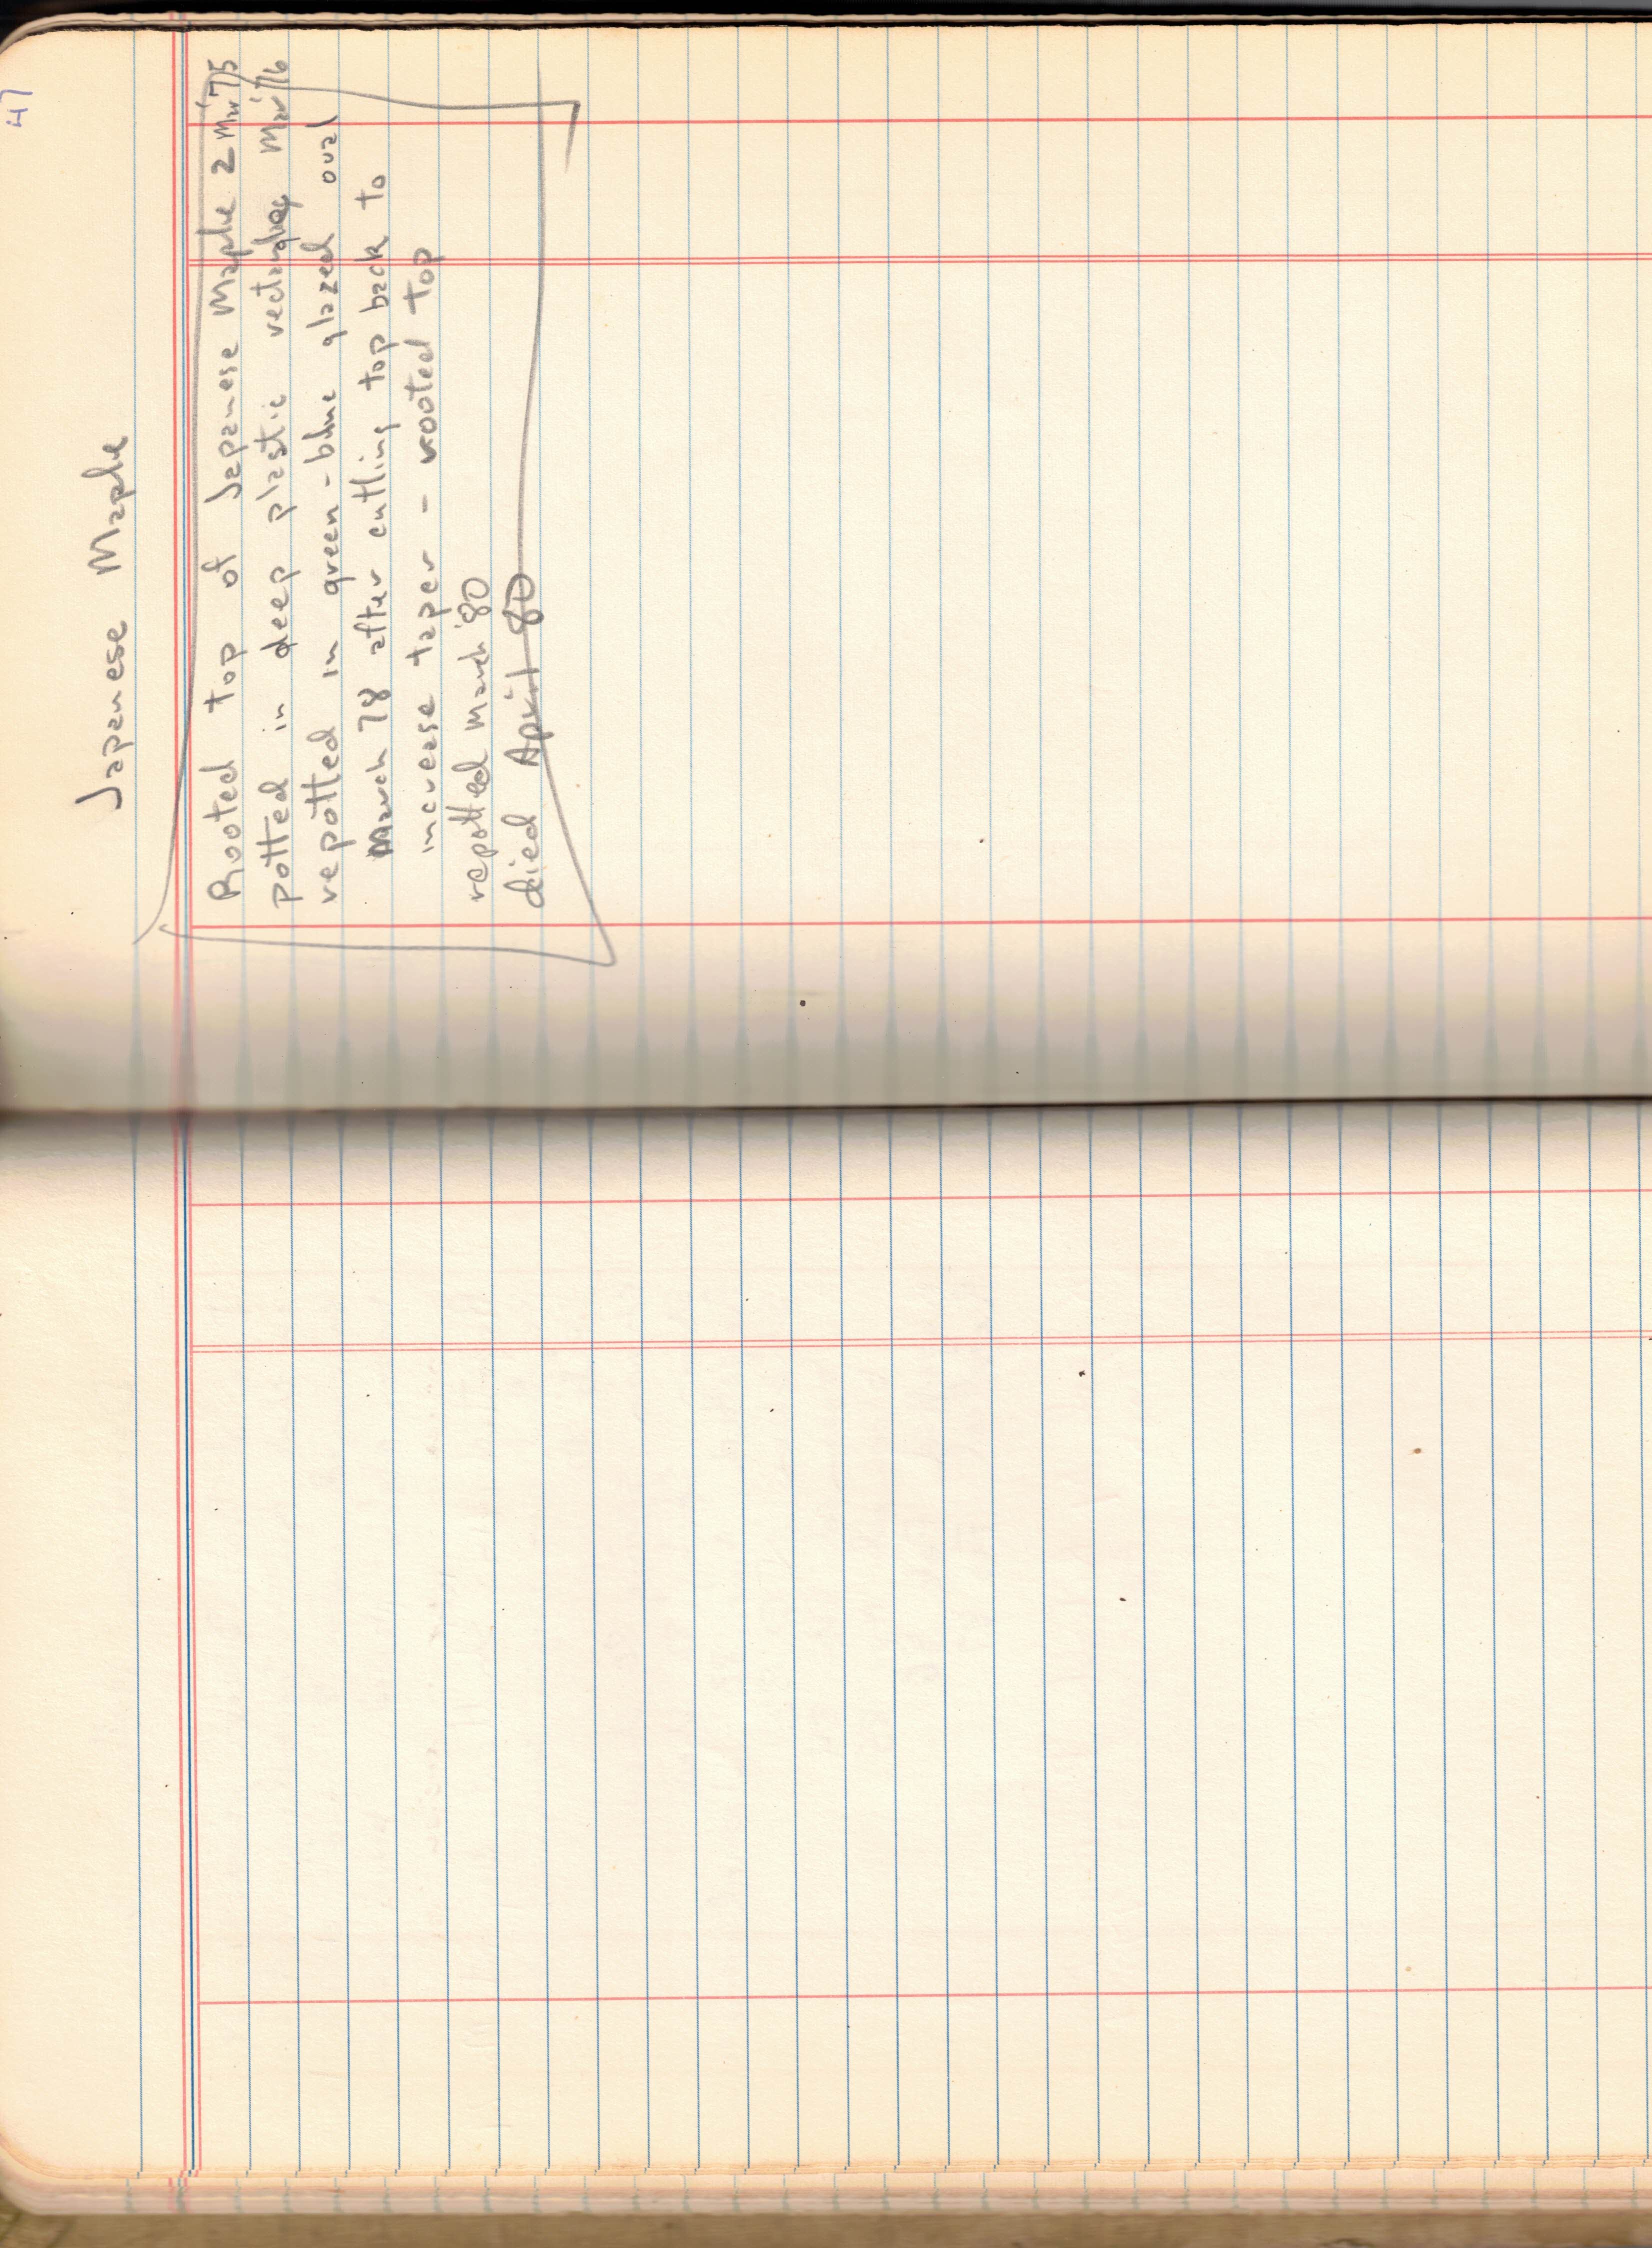 47
Japanese Maple
Rooted top of Japanese Maple 2 Mar '75
potted in deep plastic rectangle Mar '76
repotted in green-blue glazed oval
March 78 after cutting top back to
increase taper - rooted top
repotted March '80
died April 80